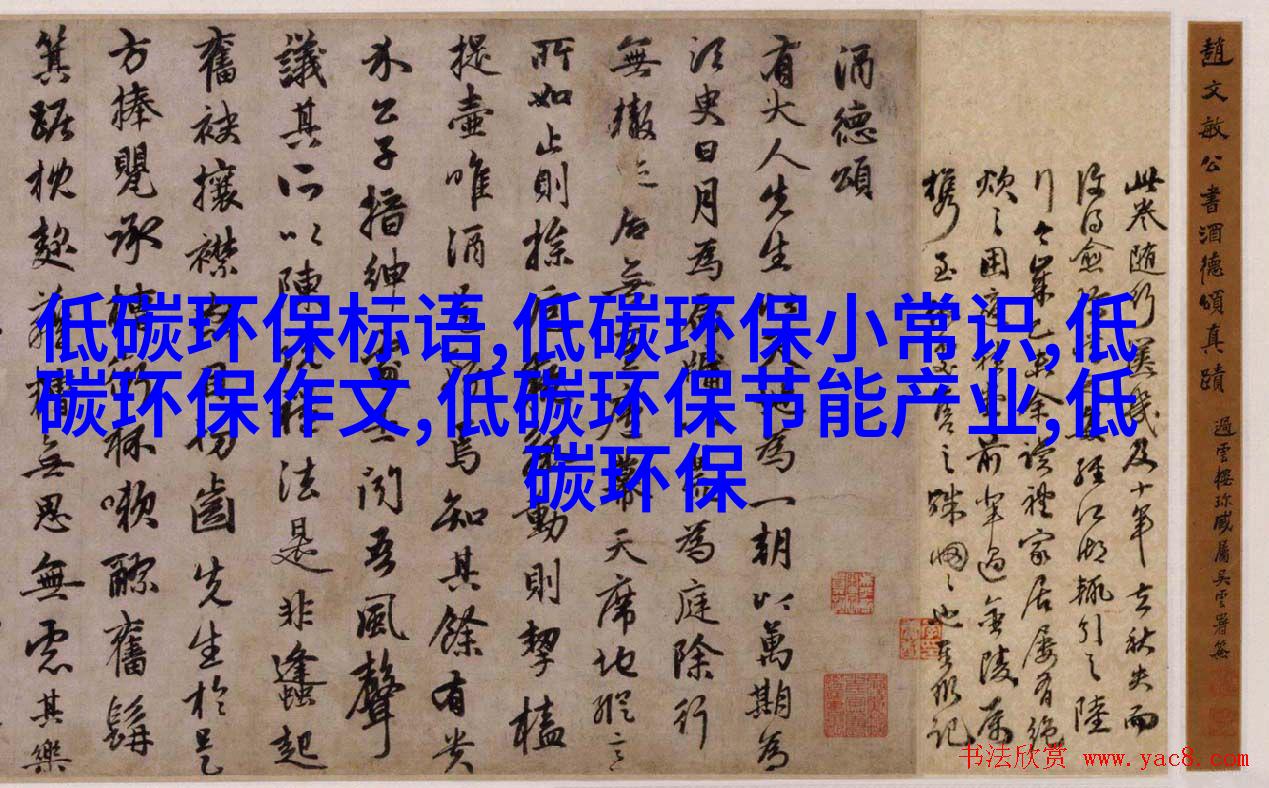 低碳环保标语,低碳环保小常识,低
碳环保作文,低碳环保节能产业,低
碳环保
趙文敏公書酒德頌真蹟
過雲樓珍藏屬吳雲署簽
此卷随行笈幾及十年去秋失而
經江湖輒引之陸
家居屢有絕
炊之困
酒德頌
有大人先生以天地為一朝以萬期為
須臾日月為扃牖八荒為庭除行
無轍迹居無室廬幕天席地縱意
所如止則操卮執觚動則挈榼
提壺唯酒是務焉知其餘有貴
介公子搢紳處士聞吾風聲
議其所以陳說禮法是非蠭起
奮袂攘襟怒目切齒先生於是
方捧甖承槽銜杯漱醪奮髯
箕踞枕麴藉糟無思無慮其樂
书法欣赏 www.yac8.com